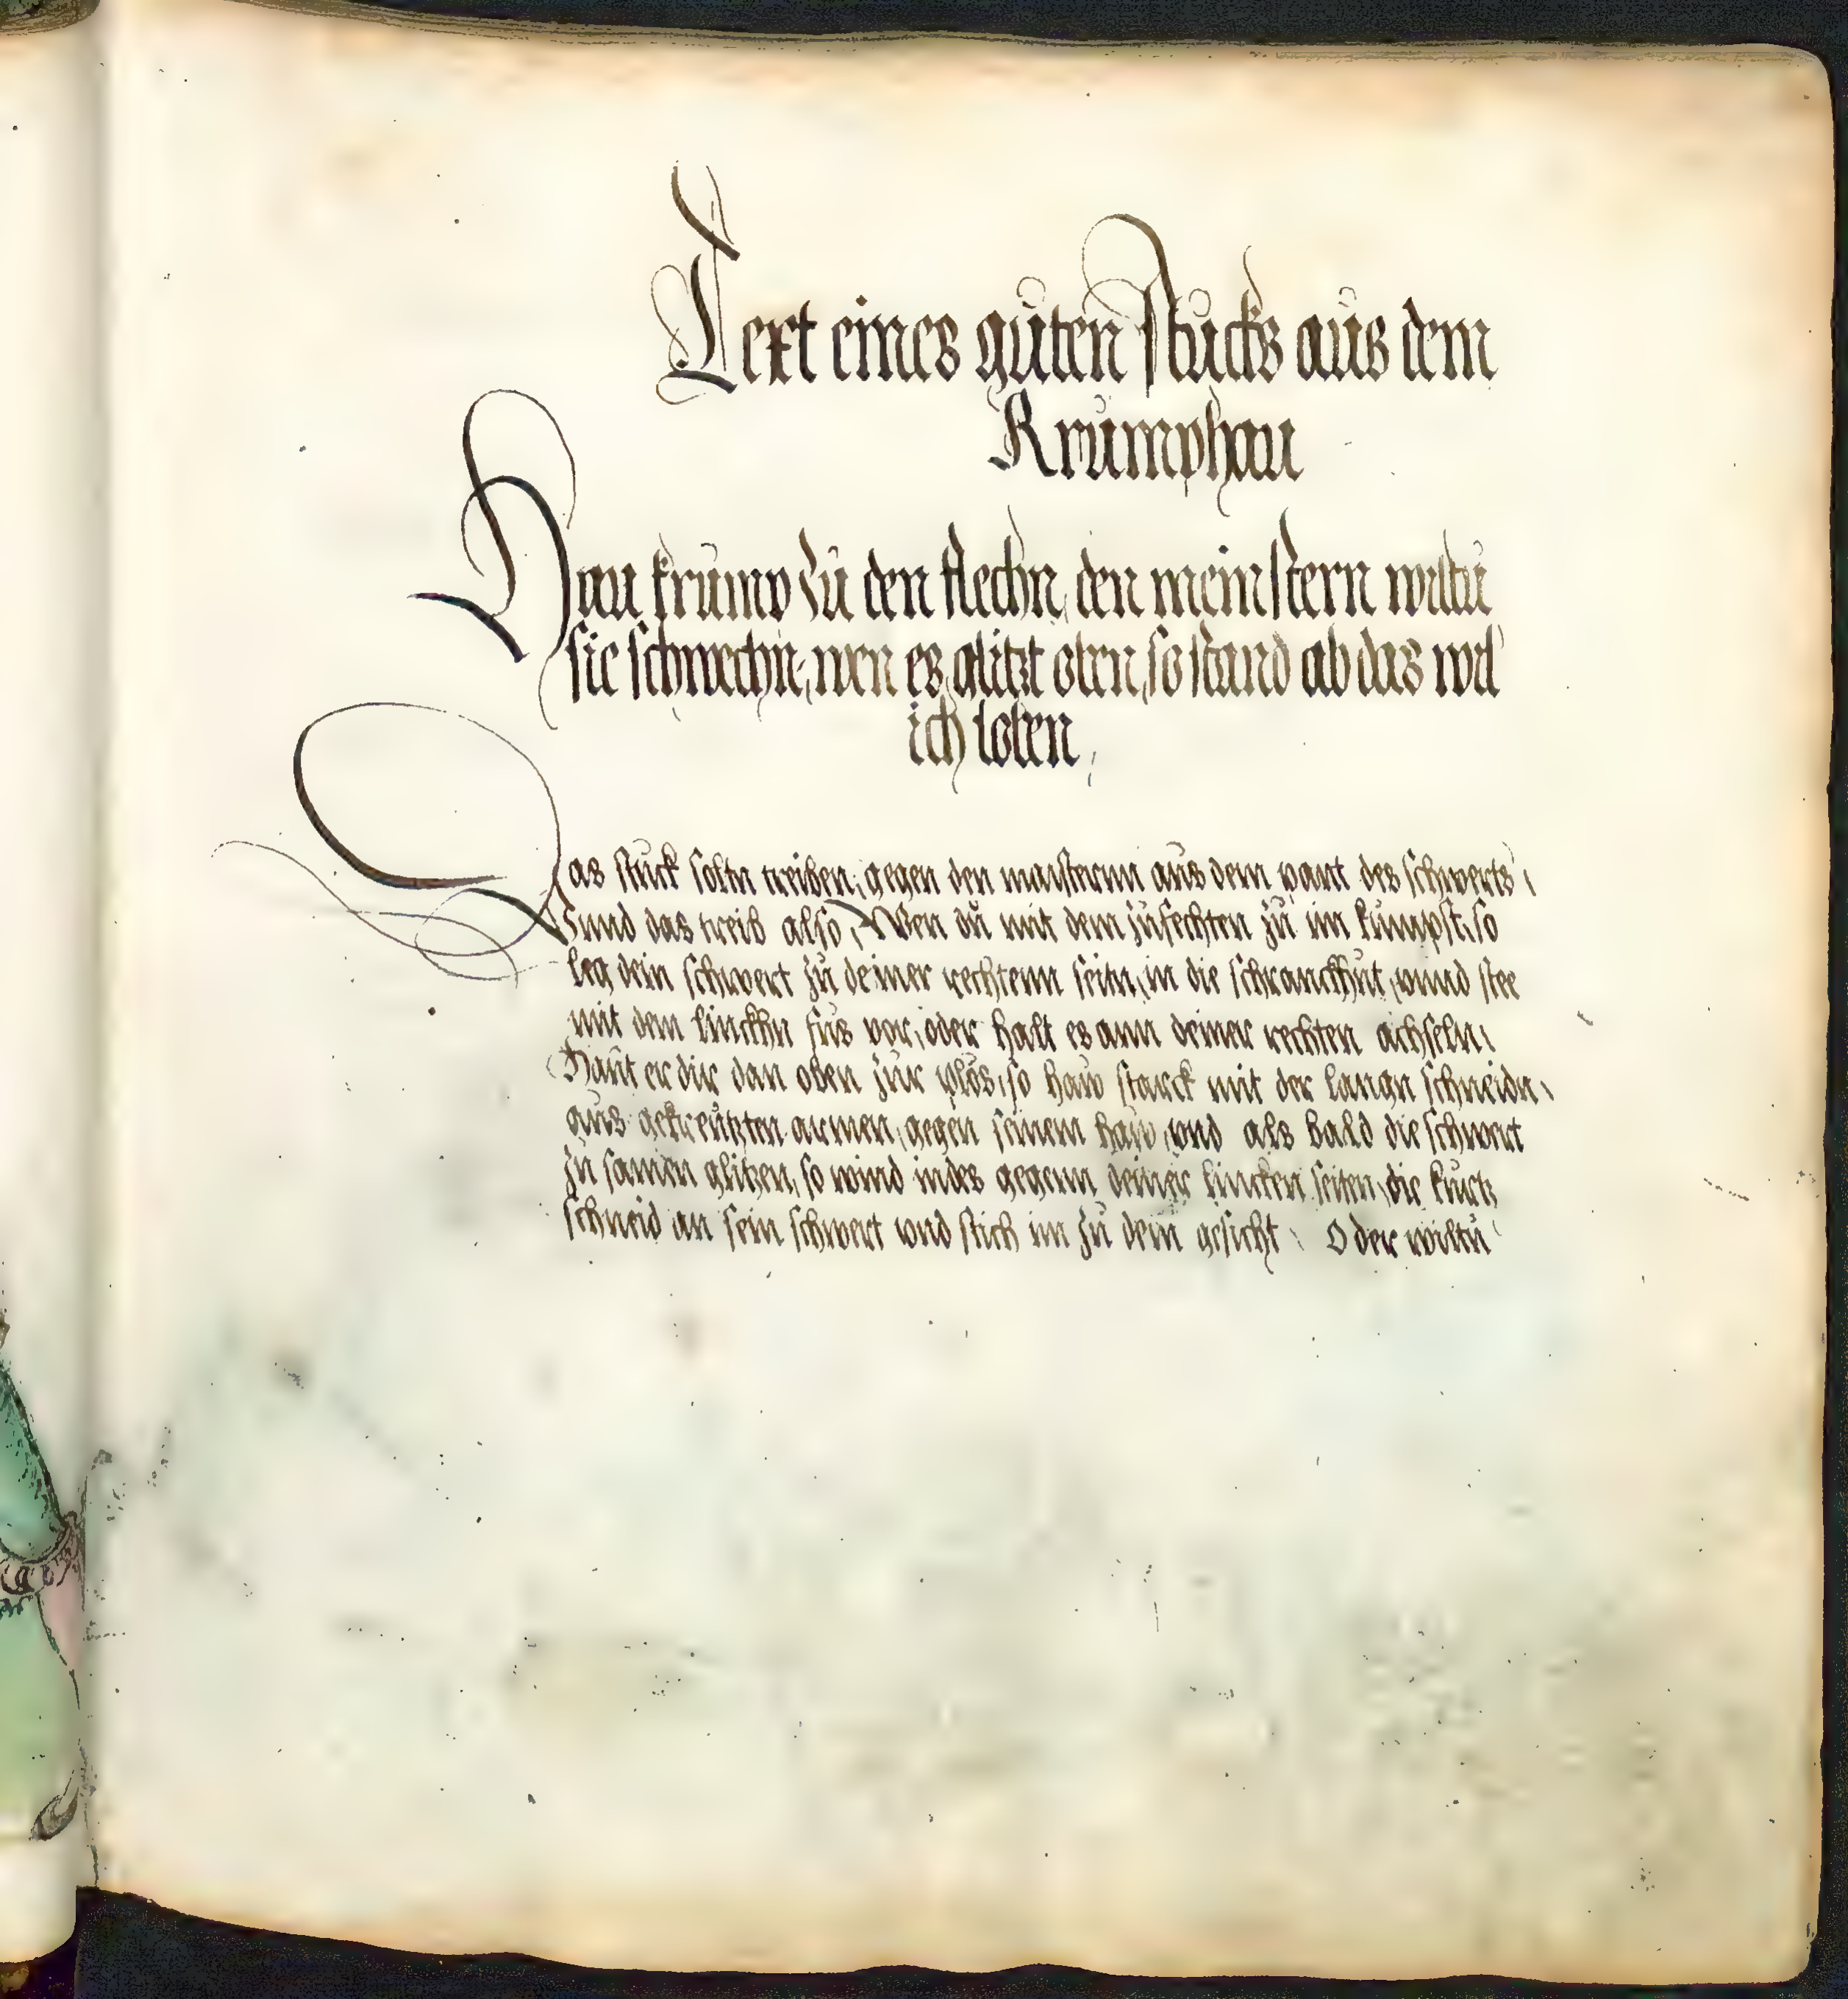 Text eines guten stucks aus dem
Krumphau
Hau krump zu den flechn, den meinstern wiltu
sie schwechn, wen es glitzt oben, so stand ab das wil
ich loben,
Das stuck soltu treiben, gegen den maisternn aus dem pant des schwerts,
unnd das treib also, Wen du mit dem zufechten zu im kumpst, so
leg dein schwert zu deiner rechtenn seitn, in die schranckhut, unnd stee
mit dem linckhn fus vor, oder halt es ann deiner rechten achseln,
Haut er dir dan oben zur plös, so haw starck mit der langn schneidn,
aus gekreutzten armen, gegen seinem haw, vnd als bald die schwert
zu samen glitzen, so wind indes gegenn deiner lincken seiten, die kurtz
schneid an sein schwert vnd stich im zu dem gesicht, Oder wiltu